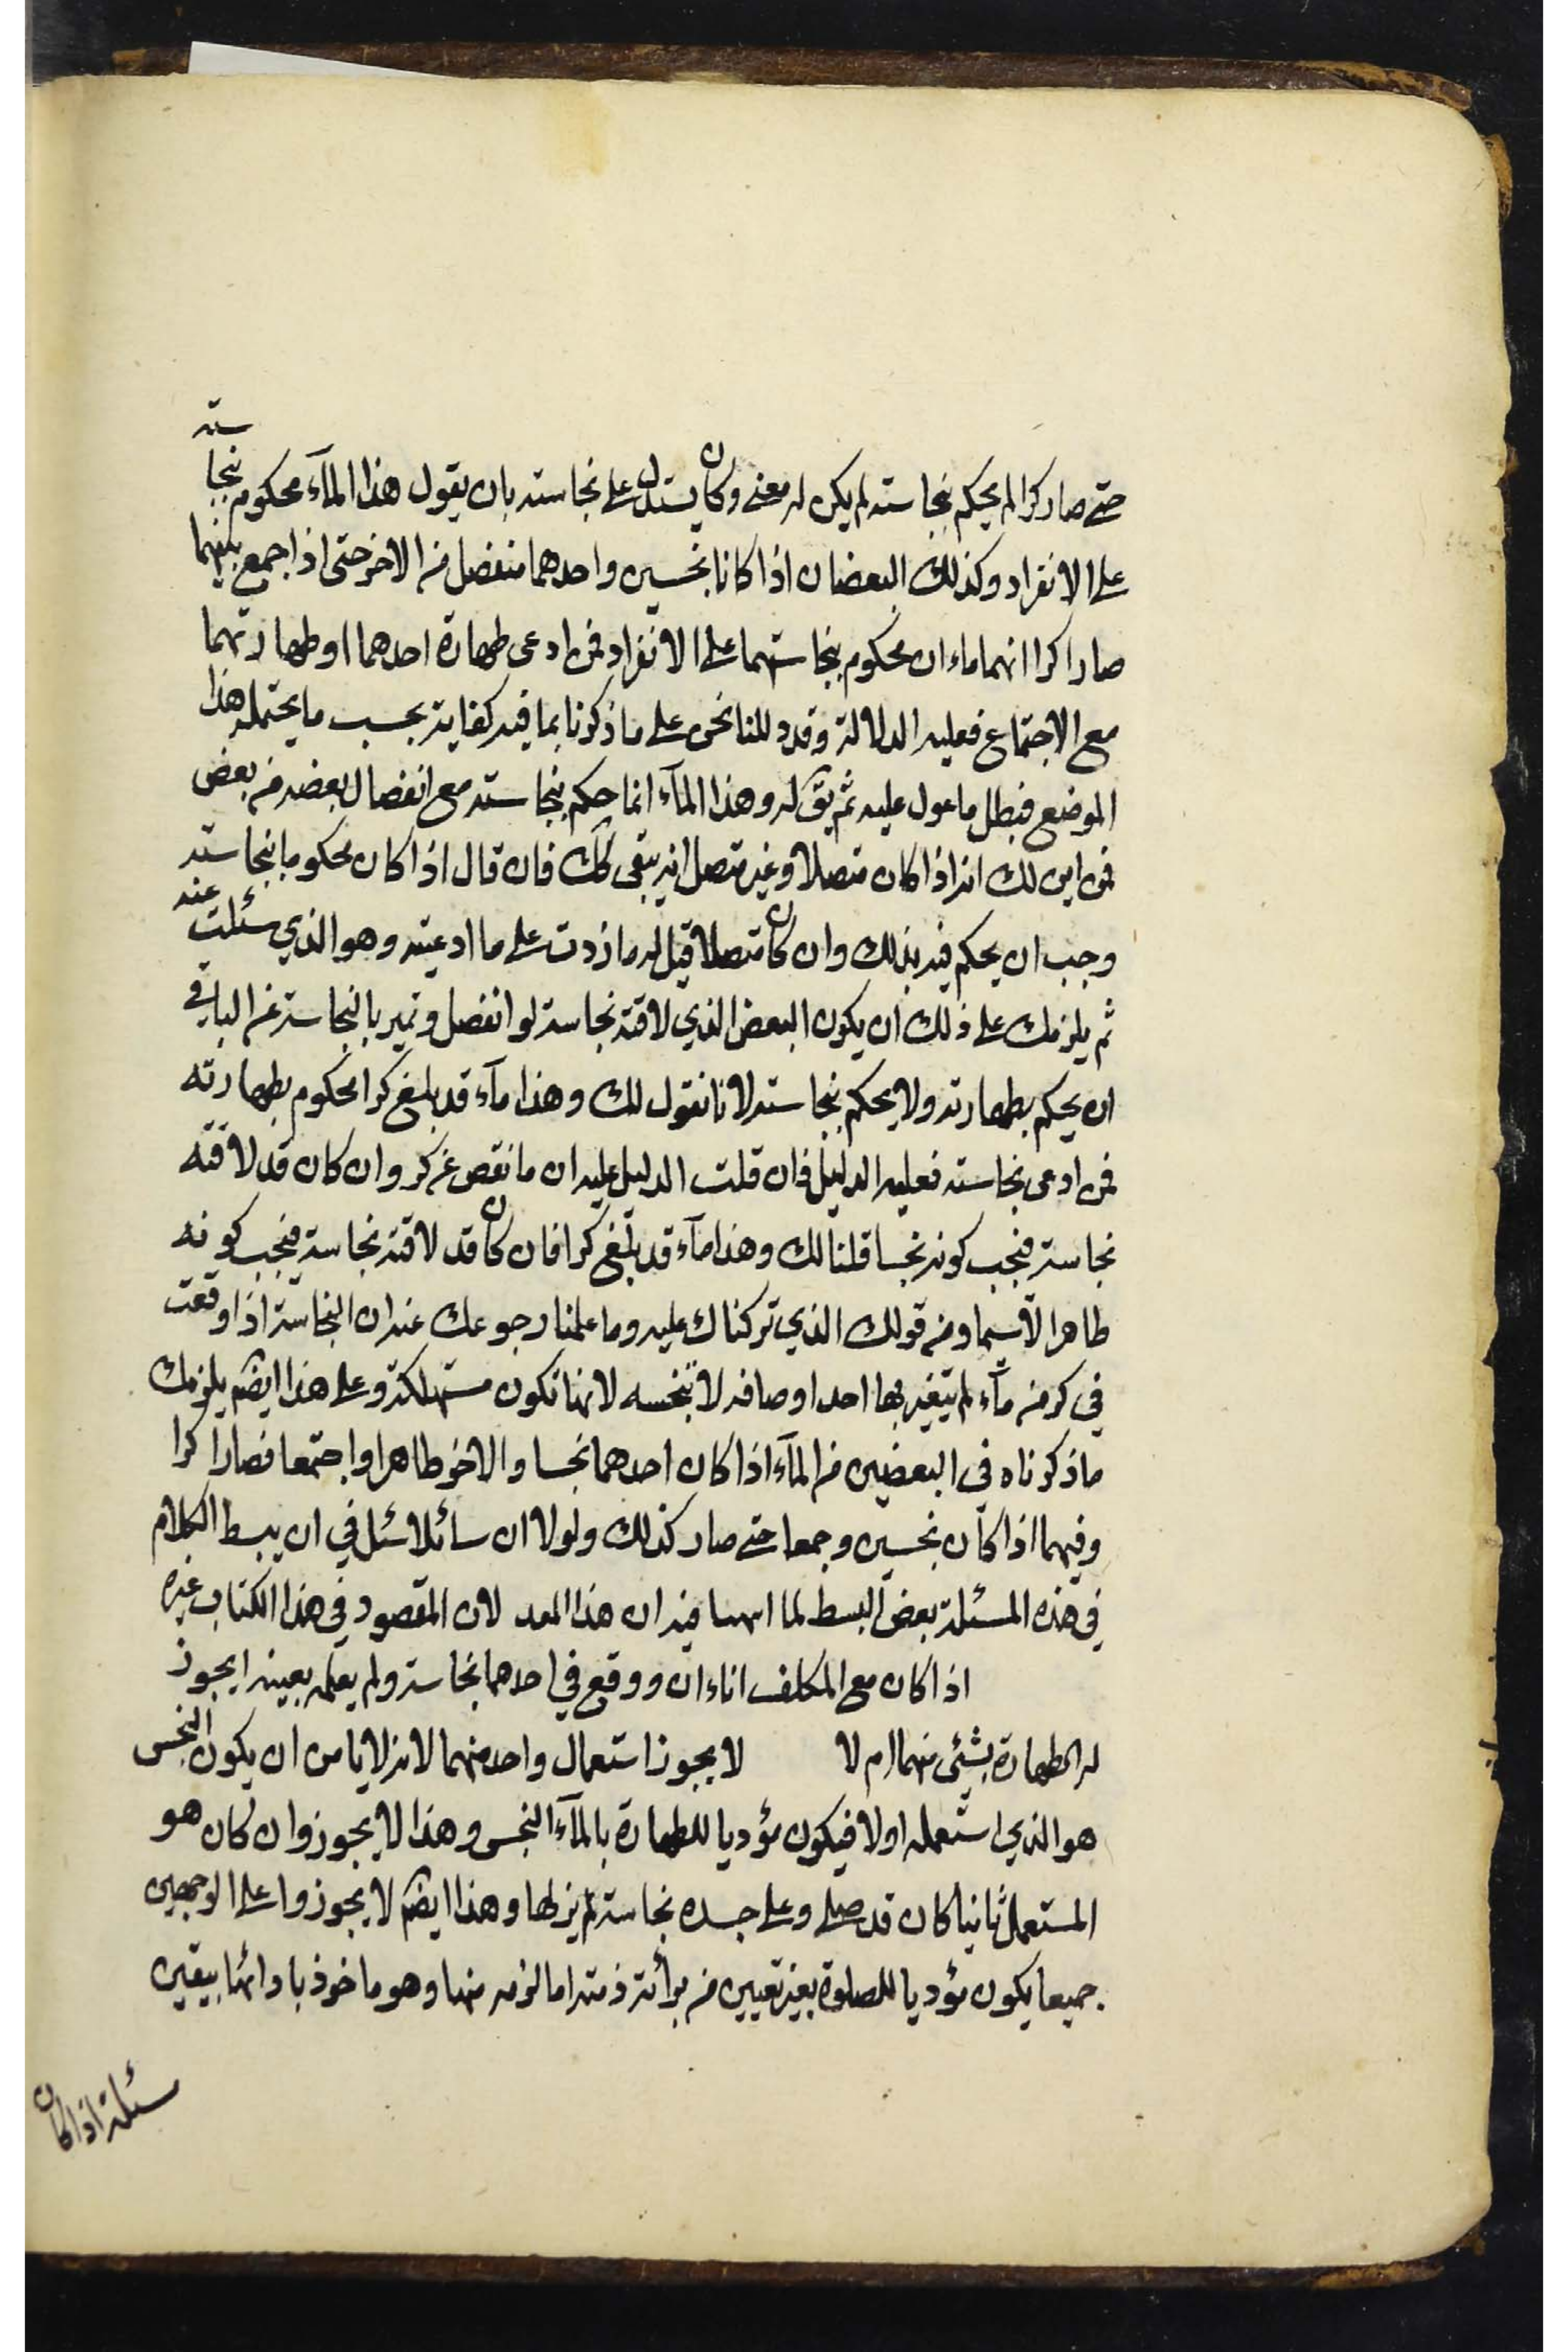 حتى صار كرا لم يحكم بنجاسته لم يكن له معنى وكان يستدل على نجاسته بان يقول هذا المآء محكوم بنجاسته
على الانفراد وكذلك البعضان اذا كانا نجسين واحدهما منفصل من الاخر حتى اذا جمع بينهما
صارا كرا انهما ماءان محكوم بنجاستهما على الانفراد فمن ادعى طهارة احدهما او طهارتهما
مع الاجتماع فعليه الدلالة وقد دللنا نحن على ما ذكرنا بما فيه كفاية بحسب ما يحتمله هذا
الموضع فبطل ما عول عليه ثم يق له وهذا المآء انما حكم بنجاسته مع انفصال بعضه من بعض
فمن اين لك انه اذا كان متصلا وغير متصل انه يبقى كك فان قال اذا كان محكوما بنجاسته
وجب ان يحكم فيه بذلك وان كان متصلا قيل له ما زدت على ما ادعيته وهو الذي سئلت عنه
ثم يلزمك على ذلك ان يكون البعض الذي لاقته نجاسة لو انفصل وتميز بالنجاسة عن الباقي
ان يحكم بطهارته ولا يحكم بنجاسته لانا نقول لك وهذا مآء قد بلغ كرا محكوم بطهارته
فمن ادعى نجاسته فعليه الدليل فان قلت الدليل عليه ان ما نقص عن كر وان كان قد لاقته
نجاسة فيجب كونه نجسا قلنا لك وهذا مآء قد بلغ كرا فان كان قد لاقته نجاسة فيجب كونه
طاهرا لاسيما ومن قولك الذي تركناك عليه وما علمنا رجوعك عنه ان النجاسة اذا وقعت
في كر من مآء لم يتغير بها احد اوصافه لا تنجسه لانها تكون مستهلكة وعلى هذا ايضم يلزمك
ما ذكرناه في البعضين من المآء اذا كان احدهما نجسا والاخر طاهرا واجتمعا فصارا كرا
وفيهما اذا كان نجسين وجمعا حتى صار كذلك ولولا ان سائلا سئل في ان يبسط الكلام
في هذه المسئلة بعض البسط لما فيه ان هذا لان المقصود في هذا الكتاب غيره
اذا كان مع المكلف اناءان ووقع في احدهما نجاسة ولم يعلمه بعينه ايجوز
له الطهارة بشئى منهما ام لا لا يجوز استعمال واحد منهما لانه لا يامن ان يكون النجس
هو الذي استعمله اولا فيكون مؤديا للطهارة بالمآء النجس وهذا لا يجوز وان كان هو
المستعمل ثانيا كان قد صلى وعلى جسده نجاسة لم يزلها وهذا ايضم لا يجوز وا على الوجهين
جميعا يكون مؤديا للصلوة بغير تعيين من برائة ذمته اما لزمه منها وهو ماخوذ بادائها بيقين
مسئلة اذا كان